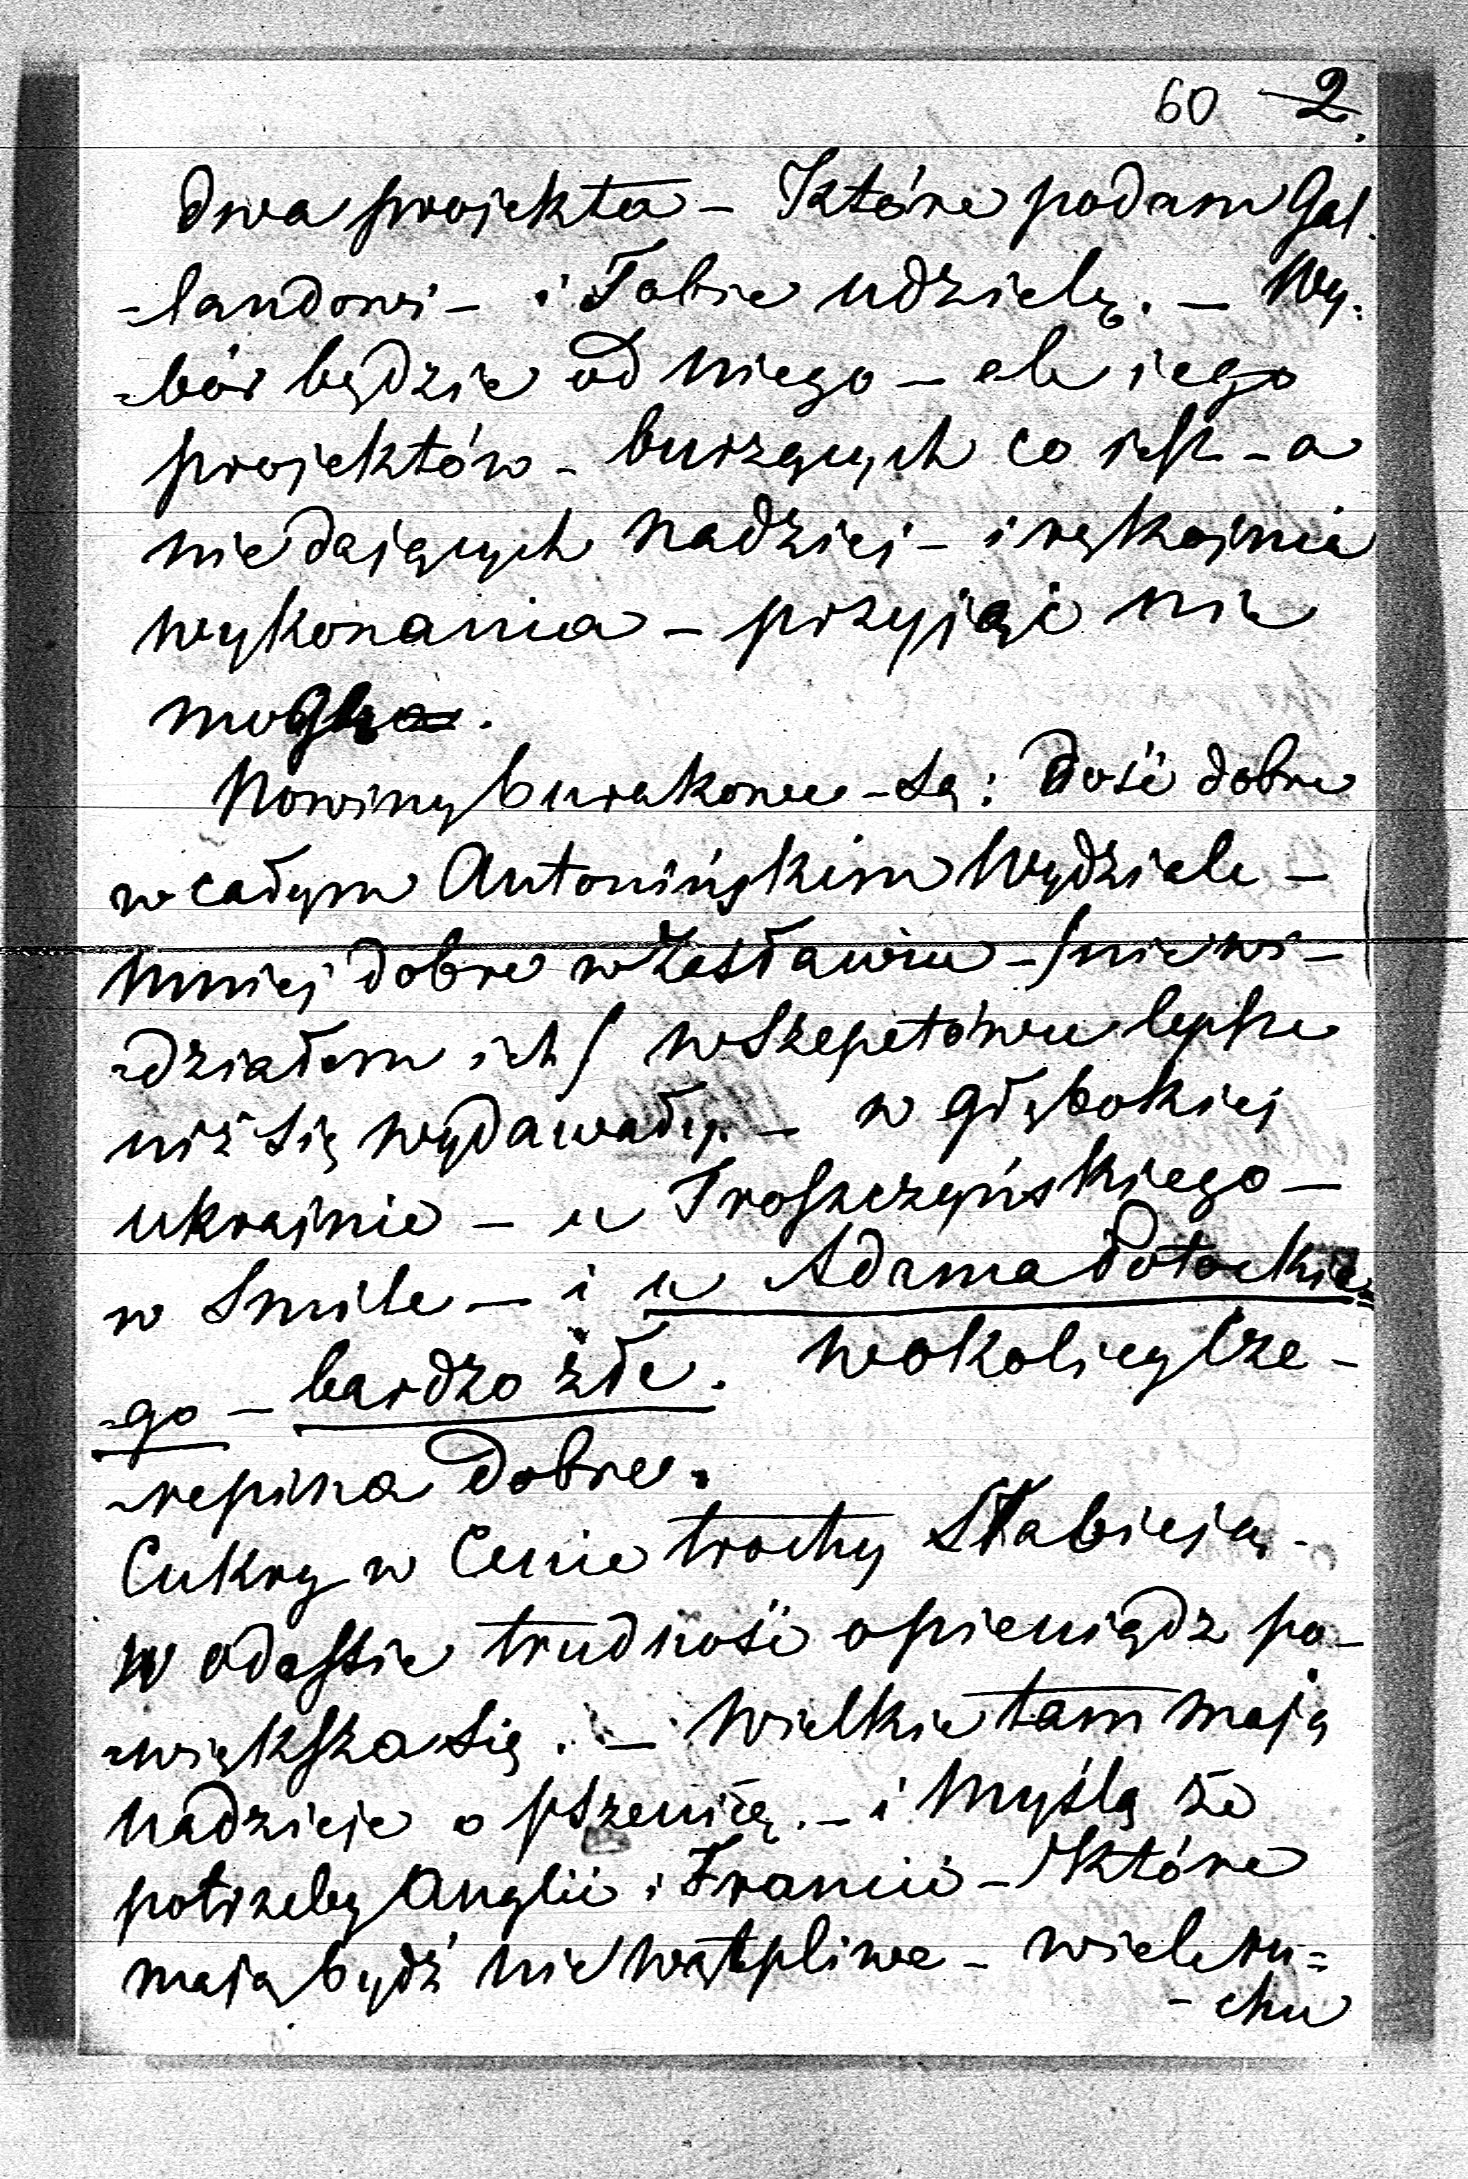 60 2.
dwa projekta – które podam Gal.
-landowi – i Tobie udzielę. – Wy:
-bór będzie od niego – ale iego
projektów – burzących co jest – a
nie dających nadziei – i rękojmia
wykonania – przyjąć nie
mogę.
Nowiny burakowe – są: dość dobre
w całym Antonińskim Wydziale –
mniej dobre w Zasławiu – /nie wi-
-działem ich/ w Szepetówce lepsze
niż się wydawały. – w głębokiej
ukrajnie – u Troszczyńskiego –
w Smile – i u Adama Potockie=
-go – bardzo źle. w okolicy Cze-
-repina dobre.
Cukry w Cenie trochę Słabieją.
w Odessie trudność o pieniądz po-
-większa się. – Wielkie tam mają
nadzieje o pszenicę. – i Myślą że
potrzeby Anglii i Francii – które
mają bydź nie wątpliwe – wiele ru=
-chu